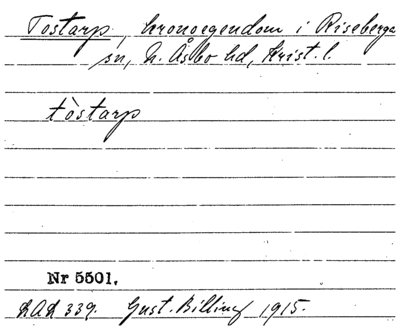 Tostarp, kronoegendom i Riseberga
sn, N. Åsbo hd, Krist. l.
tòstarp
Nr 5501.
LAL 339. Gust. Billing 1915.